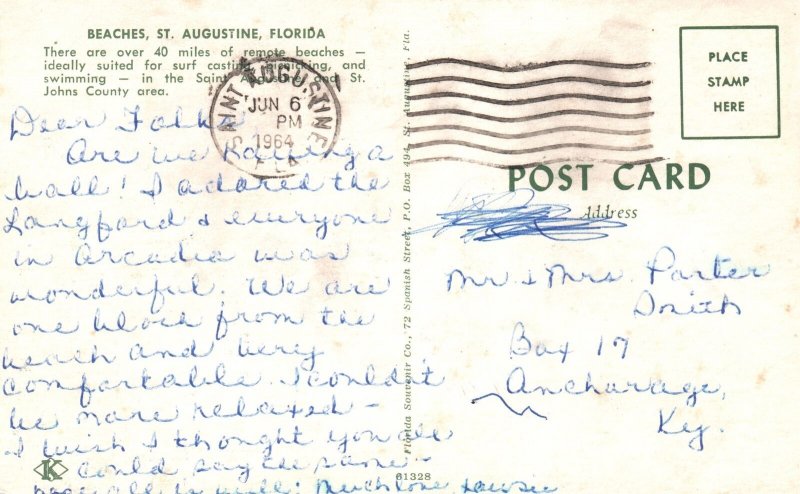 BEACHES, ST. AUGUSTINE, FLORIDA
There are over 40 miles of remote beaches —
ideally suited for surf casting, picnicking, and
swimming — in the Saint Augustine and St.
Johns County area.
SAINT AUGUSTINE
JUN 6
PM
1964
FLA
Dear Folks
Are we having a
ball! I adored the
Langford & everyone
in Arcadia was
wonderful. We are
one block from the
beach and very
comfortable. I couldn't
be more relaxed —
I wish I thought you all
could say the same —
hope all is well. Much love
K
61328
Florida Souvenir Co., 72 Spanish Street, P.O. Box 494, St. Augustine, Fla.
PLACE
STAMP
HERE
POST CARD
Address
Mr & Mrs. Porter
Box 17
Anchorage,
Ky.